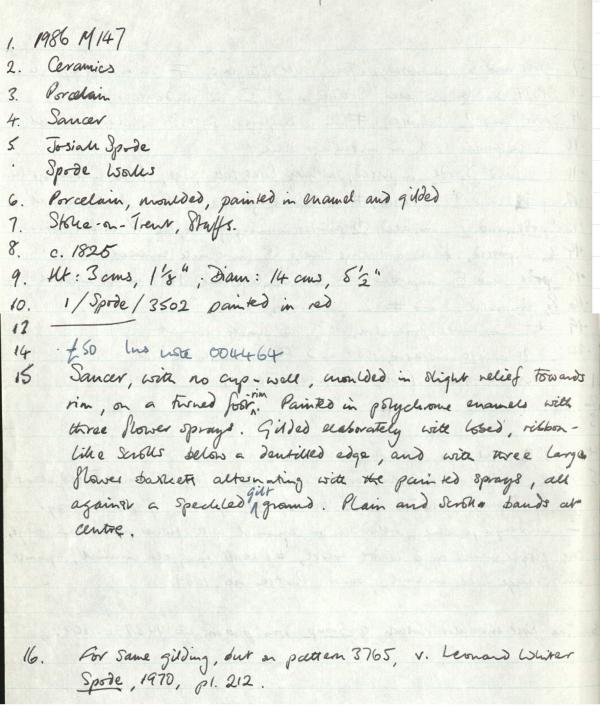 1. 1986 M147
2. Ceramics
3. Porcelain
4. Saucer
5 Josiah Spode
. Spode Works
6. Porcelain, moulded, painted in enamel and gilded
7. Stoke-on-Trent, Staffs.
8. c. 1825
9. Ht: 3 cms, 1⅛"; Diam: 14 cms, 5½"
10. 1/Spode/3502 painted in red
12
14 £50 Ins note 004464
15 Saucer, with no cup-well, moulded in slight relief towards
rim, on a turned foot-rim. Painted in polychrome enamels with
three flower sprays. Gilded elaborately with lobed, ribbon-
like scrolls below a dentilled edge, and with three large
flower baskets alternating with the painted sprays, all
against a speckled gilt ground. Plain and scroll bands at
centre.
16. For same gilding, but on pattern 3765, v. Leonard Whiter
Spode, 1970, pl. 212.